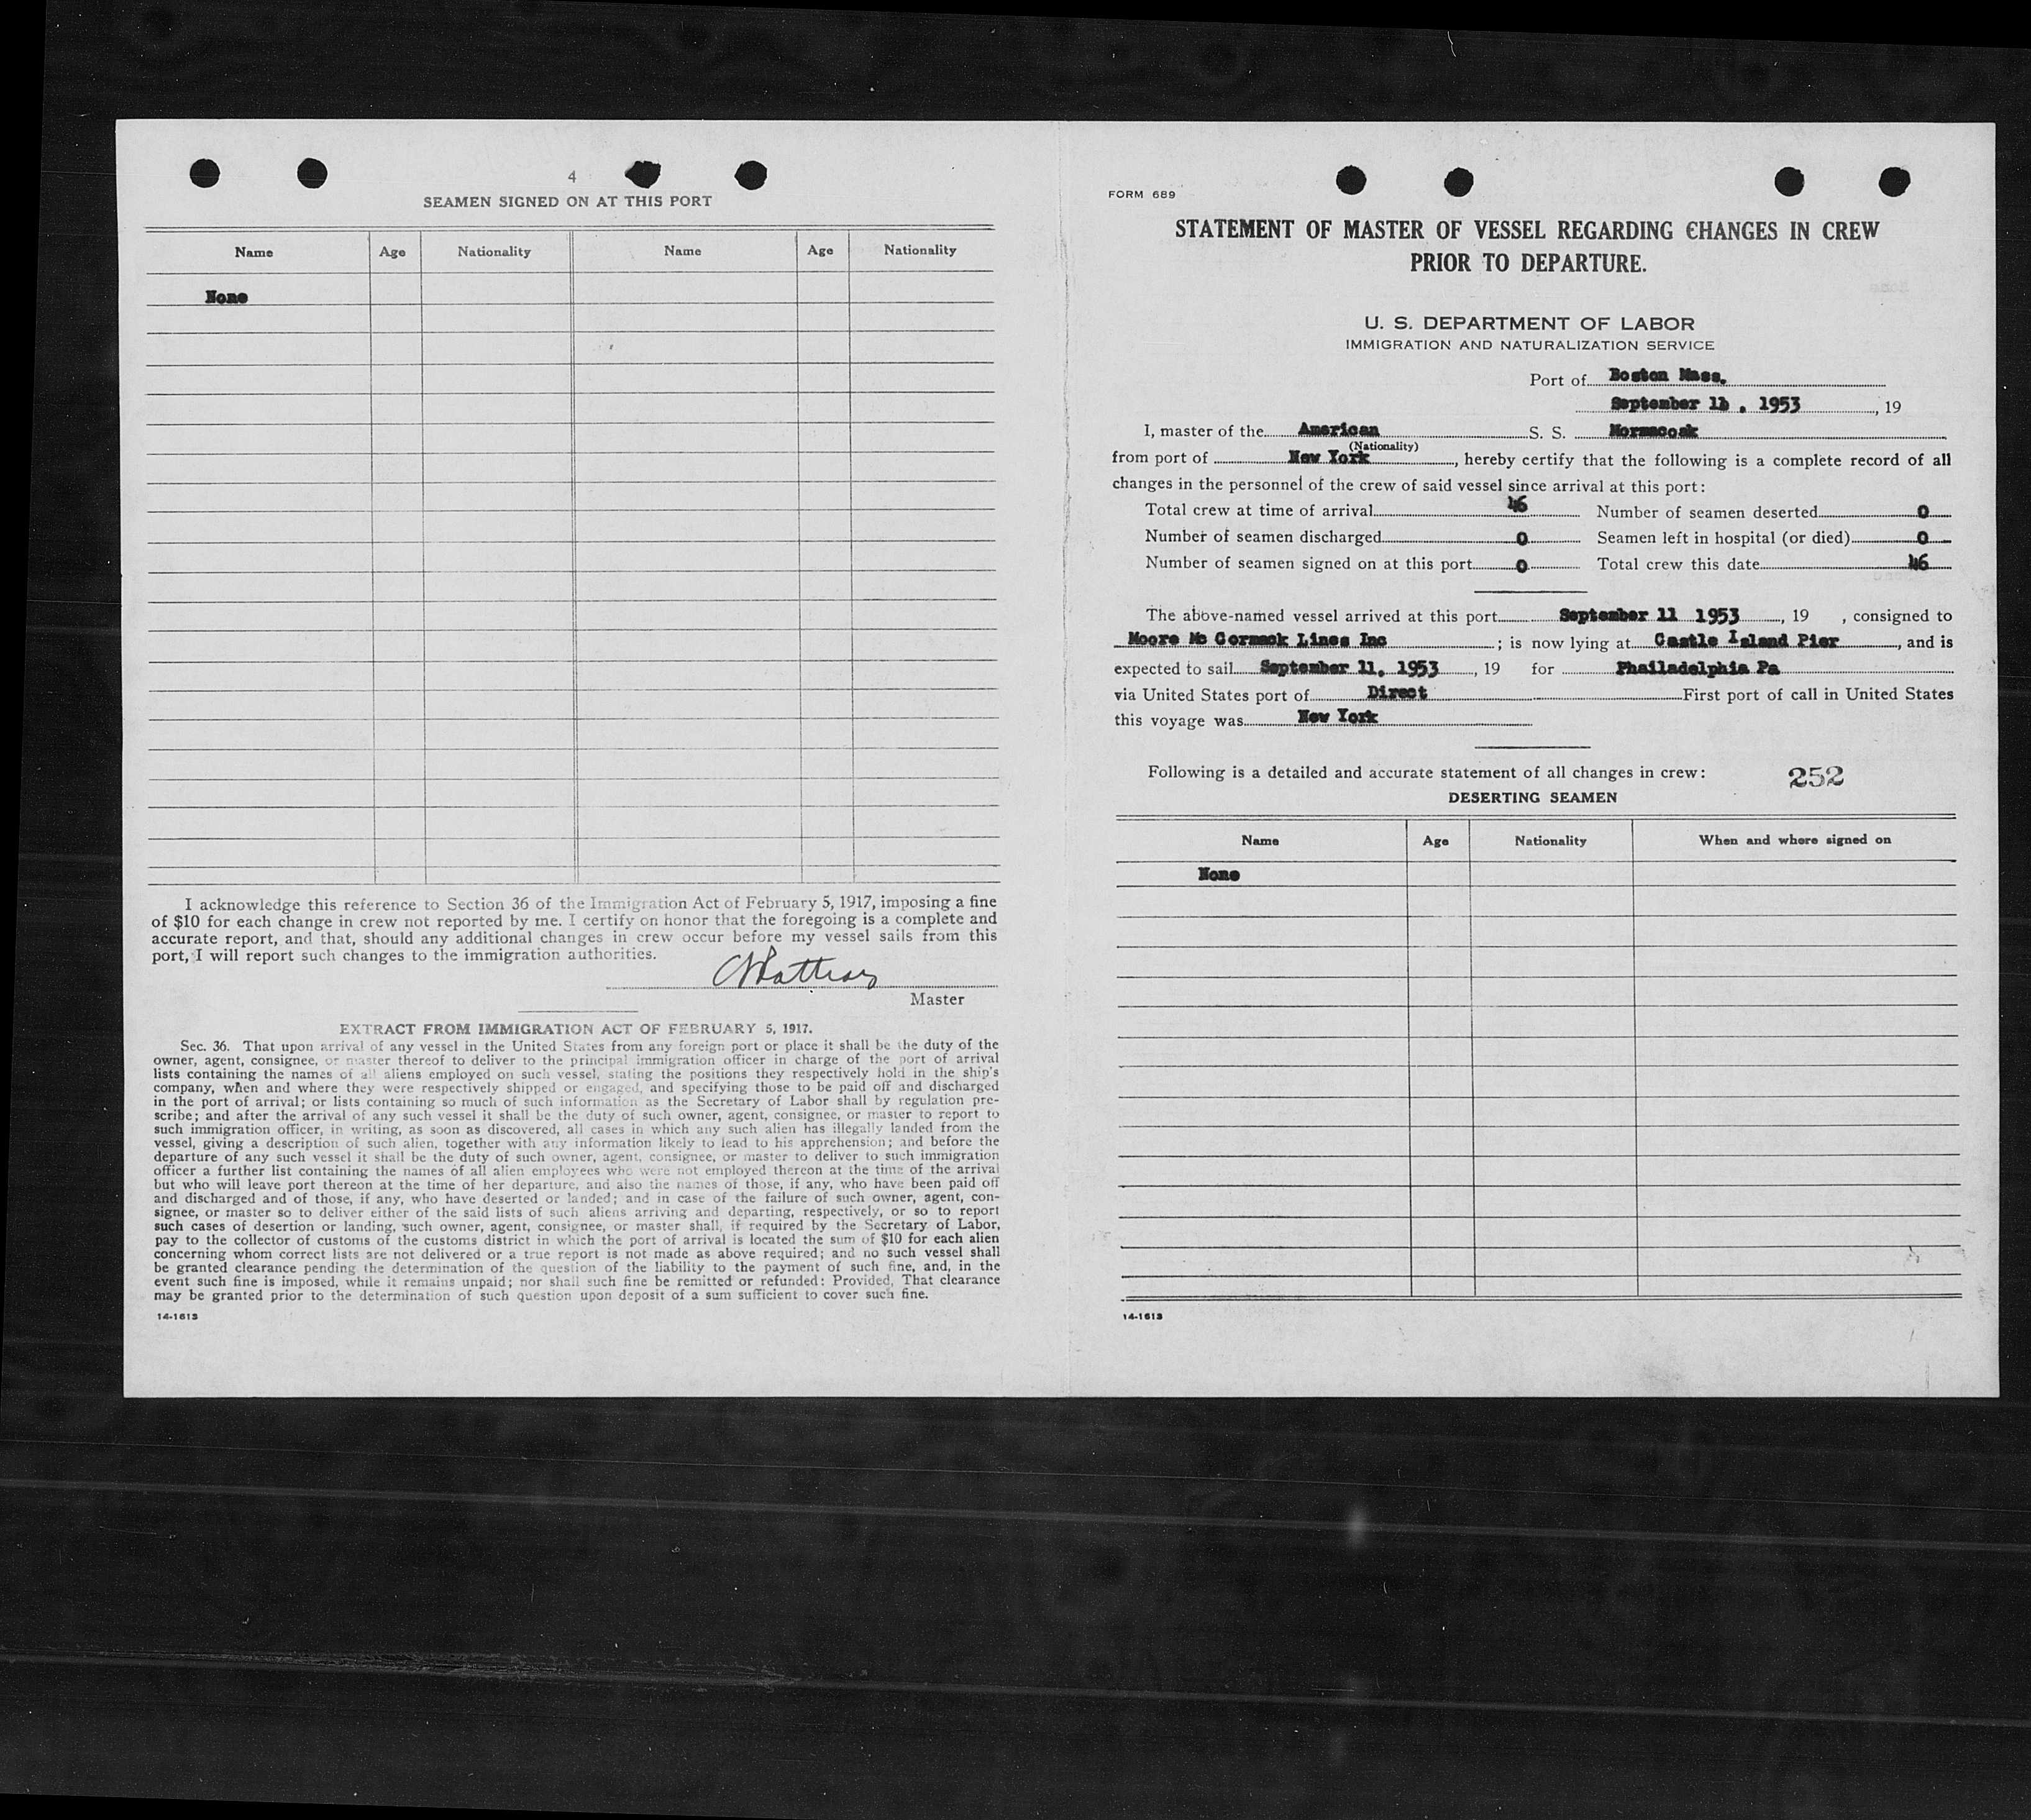 4
SEAMEN SIGNED ON AT THIS PORT
Name Age Nationality Name Age Nationality
None
I acknowledge this reference to Section 36 of the Immigration Act of February 5, 1917, imposing a fine
of $10 for each change in crew not reported by me. I certify on honor that the foregoing is a complete and
accurate report, and that, should any additional changes in crew occur before my vessel sails from this
port, I will report such changes to the immigration authorities.
Master
EXTRACT FROM IMMIGRATION ACT OF FEBRUARY 5, 1917.
Sec. 36. That upon arrival of any vessel in the United States from any foreign port or place it shall be the duty of the
owner, agent, consignee, or master thereof to deliver to the principal immigration officer in charge of the port of arrival
lists containing the names of all aliens employed on such vessel, stating the positions they respectively hold in the ship's
company, when and where they were respectively shipped or engaged, and specifying those to be paid off and discharged
in the port of arrival; or lists containing so much of such information as the Secretary of Labor shall by regulation pre-
scribe; and after the arrival of any such vessel it shall be the duty of such owner, agent, consignee, or master to report to
such immigration officer, in writing, as soon as discovered, all cases in which any such alien has illegally landed from the
vessel, giving a description of such alien, together with any information likely to lead to his apprehension; and before the
departure of any such vessel it shall be the duty of such owner, agent, consignee, or master to deliver to such immigration
officer a further list containing the names of all alien employees who were not employed thereon at the time of the arrival
but who will leave port thereon at the time of her departure, and also the names of those, if any, who have been paid off
and discharged and of those, if any, who have deserted or landed; and in case of the failure of such owner, agent, con-
signee, or master so to deliver either of the said lists of such aliens arriving and departing, respectively, or so to report
such cases of desertion or landing, such owner, agent, consignee, or master shall, if required by the Secretary of Labor,
pay to the collector of customs of the customs district in which the port of arrival is located the sum of $10 for each alien
concerning whom correct lists are not delivered or a true report is not made as above required; and no such vessel shall
be granted clearance pending the determination of the question of the liability to the payment of such fine, and, in the
event such fine is imposed, while it remains unpaid; nor shall such fine be remitted or refunded: Provided, That clearance
may be granted prior to the determination of such question upon deposit of a sum sufficient to cover such fine.
14-1613
FORM 689
STATEMENT OF MASTER OF VESSEL REGARDING CHANGES IN CREW
PRIOR TO DEPARTURE.
U. S. DEPARTMENT OF LABOR
IMMIGRATION AND NATURALIZATION SERVICE
Port of Boston Mass.
September 11, 1953, 19
I, master of the American S. S. Mormacoak
(Nationality)
from port of New York, hereby certify that the following is a complete record of all
changes in the personnel of the crew of said vessel since arrival at this port:
Total crew at time of arrival 46 Number of seamen deserted 0
Number of seamen discharged 0 Seamen left in hospital (or died) 0
Number of seamen signed on at this port 0 Total crew this date 46
The above-named vessel arrived at this port September 11 1953, 19 , consigned to
Moore Mc Cormack Lines Inc ; is now lying at Castle Island Pier, and is
expected to sail September 11, 1953, 19 for Phailadelphia Pa
via United States port of Direct First port of call in United States
this voyage was New York
Following is a detailed and accurate statement of all changes in crew: 252
DESERTING SEAMEN
Name Age Nationality When and where signed on
None
14-1613